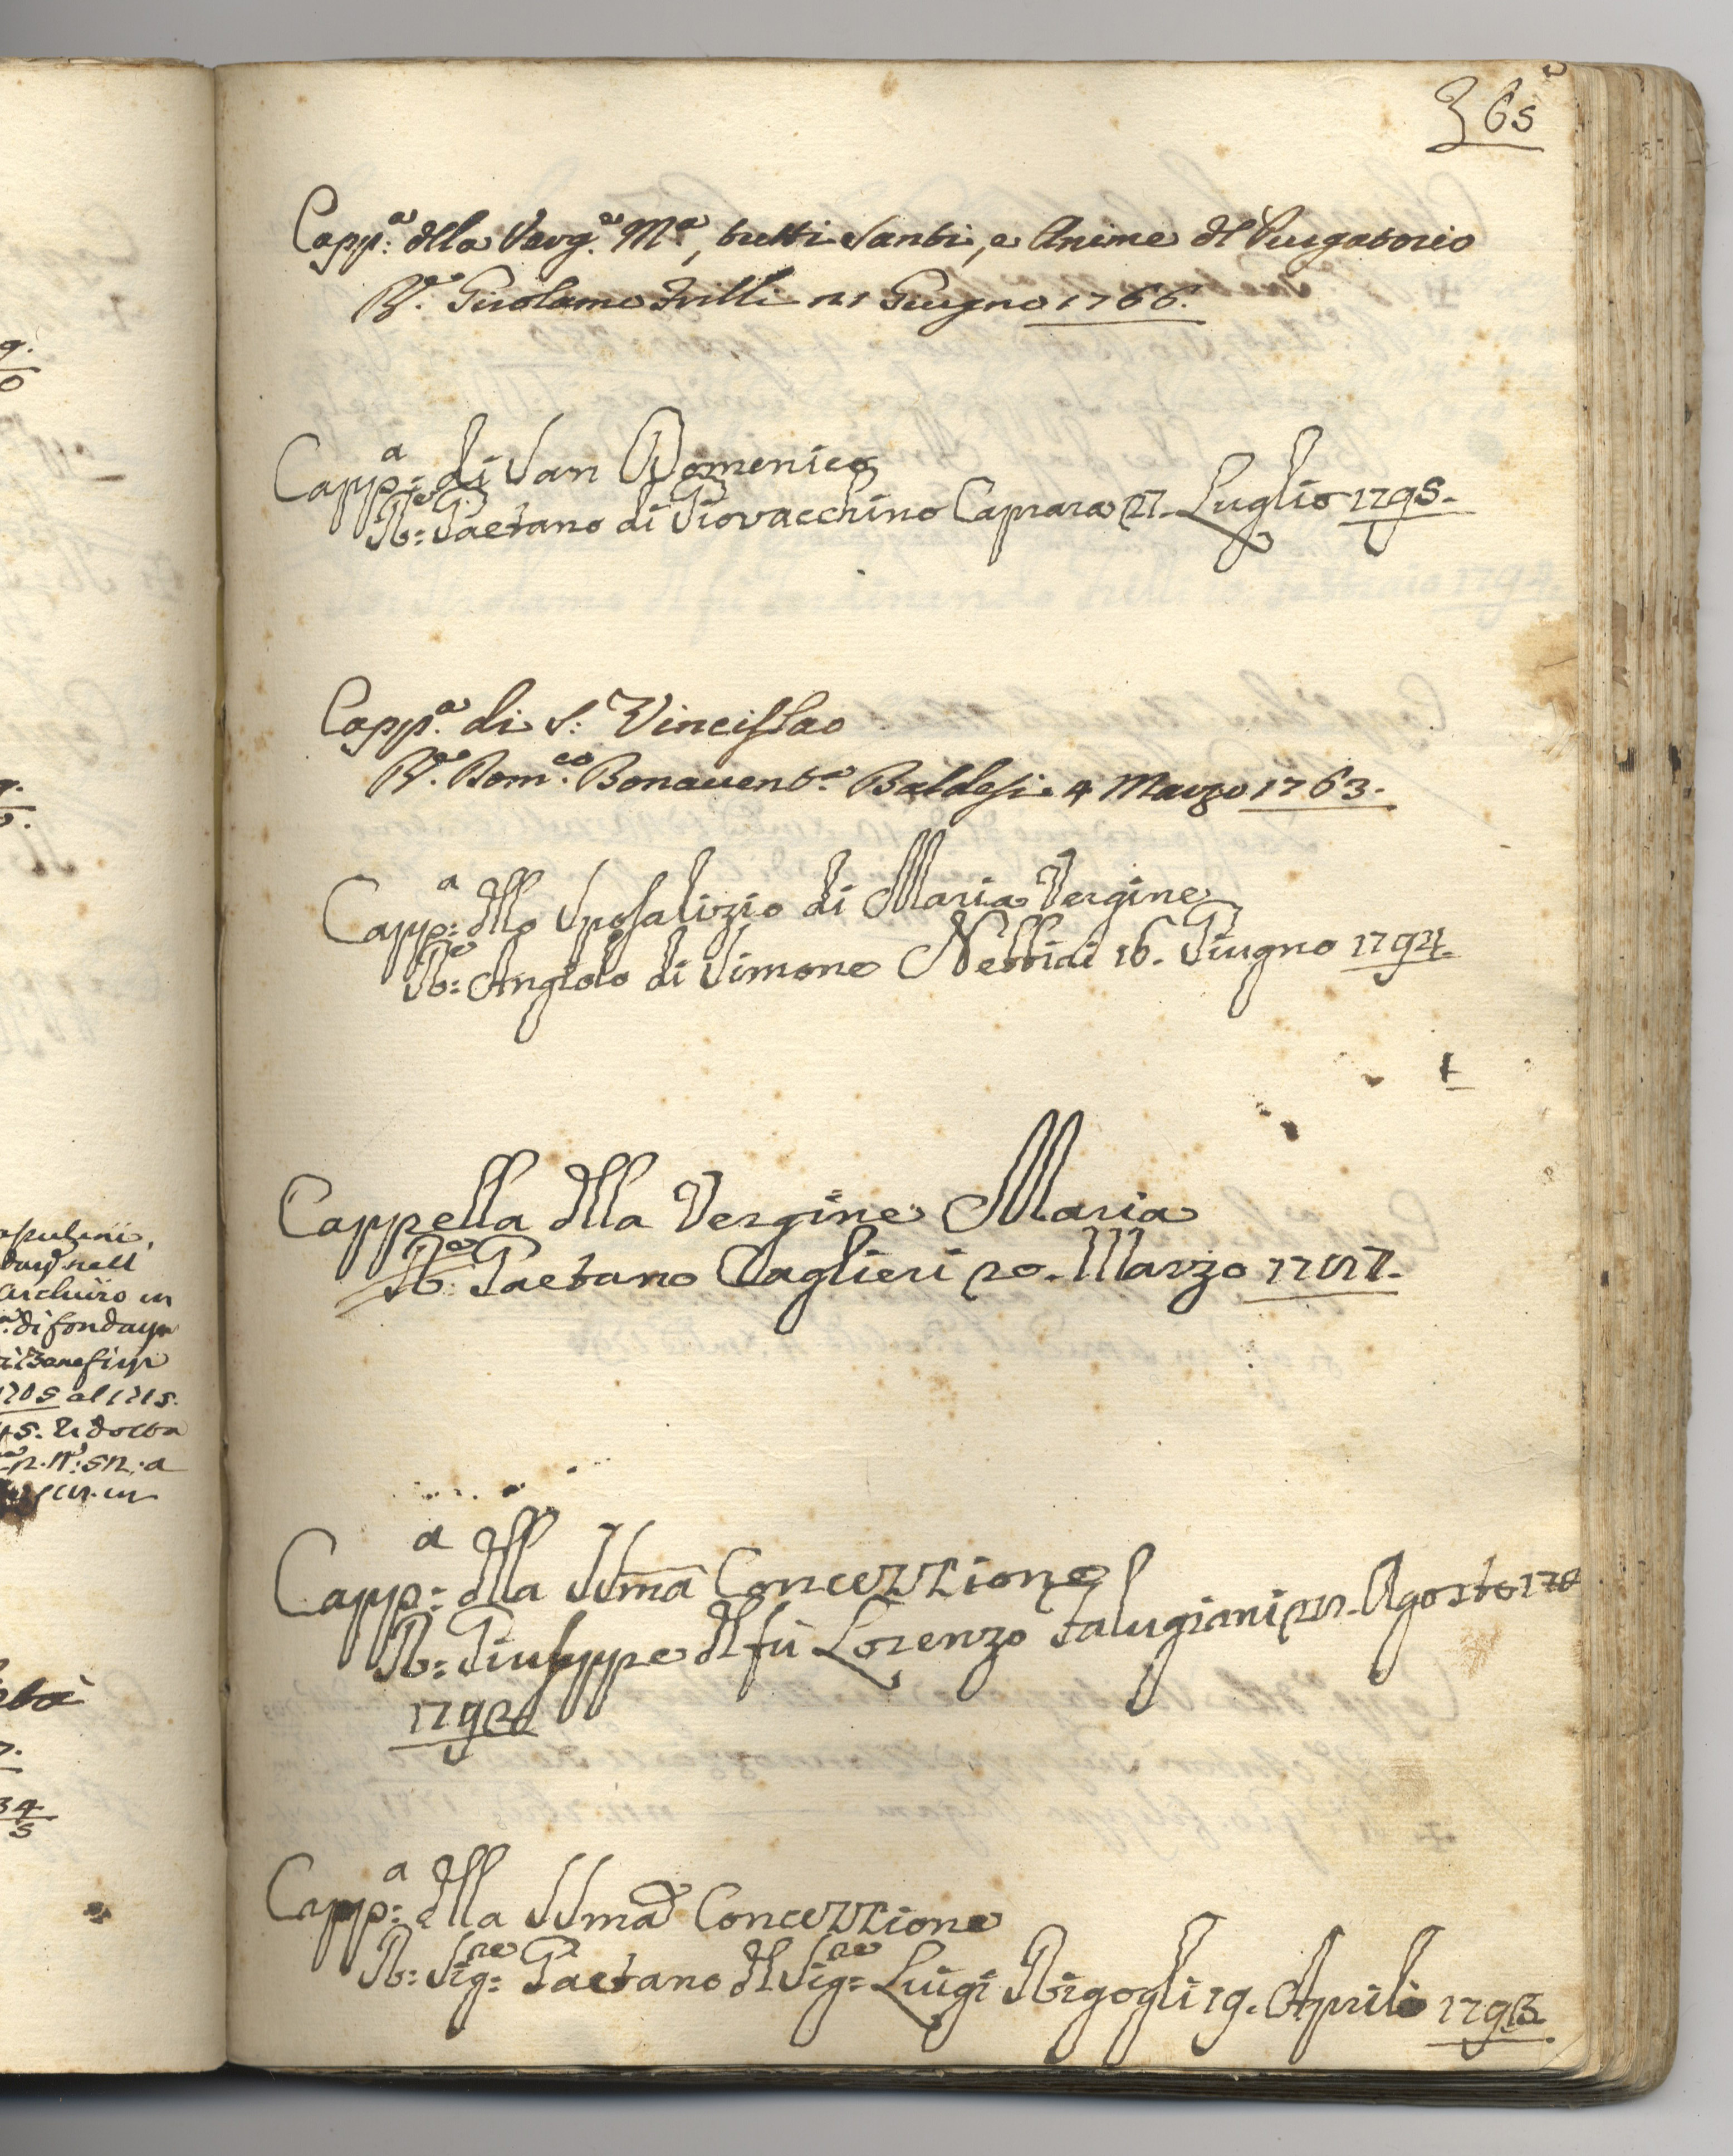 365
Capp.a dlla Verg.e M.a, tutti Santi, e Anime dl Purgatorio
R.e Girolamo Frilli 21 Giugno 1766.
Capp:a di San Domenico
R:e Gaetano di Giovacchino Caprara 27. Luglio 1795.
Capp.a di S: Vincislao
R.e Dom.co Bonavent.a Baldesi 4 Marzo 1763.
Capp:a dllo Sposalizio di Maria Vergine
R:e Angiolo di Simone Nebbiai 16. Giugno 1794.
Cappella dlla Vergine Maria
R:e Gaetano Taglieri 20. Marzo
Capp:a dlla SSma Concezzione
R: Giuseppe dl fù Lorenzo Salugiani Agosto
Capp:a dlla SSma Concezzione
R: Sig:re Gaetano dl Sig:re Luigi Rigogli 19. Aprile 1793.
archivio in
al 1715.